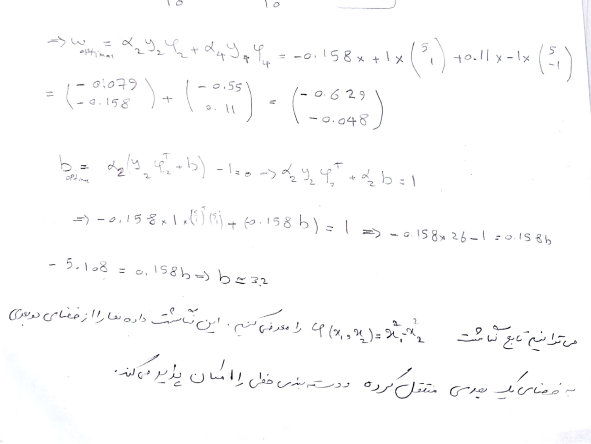 10 10
⇒ w_optimal = α₂y₂φ₂ + α₄y₄φ₄ = -0.158 × +1 × (5 1) + 0.11 × -1 × (5 -1)
= (-0.079 -0.158) + (-0.55 0.11) = (-0.629 -0.048)
b_optimal = α₂(y₂φ₂ᵀ + b) - 1 = 0 → α₂y₂φ₂ᵀ + α₂b = 1
⇒ -0.158 × 1 × (5 1)ᵀ(5 1) + (-0.158b) = 1 ⇒ -0.158 × 26 - 1 = 0.158b
-5.108 = 0.158b ⇒ b ≈ 32
می‌توانیم تابع نگاشت φ(x₁, x₂) = x₁² - x₂² را معرفی کنیم. این نگاشت داده‌ها را از فضای دو بعدی
به فضای یک بعدی منتقل کرده و دسته بندی خطی را امکان پذیر می‌کند.